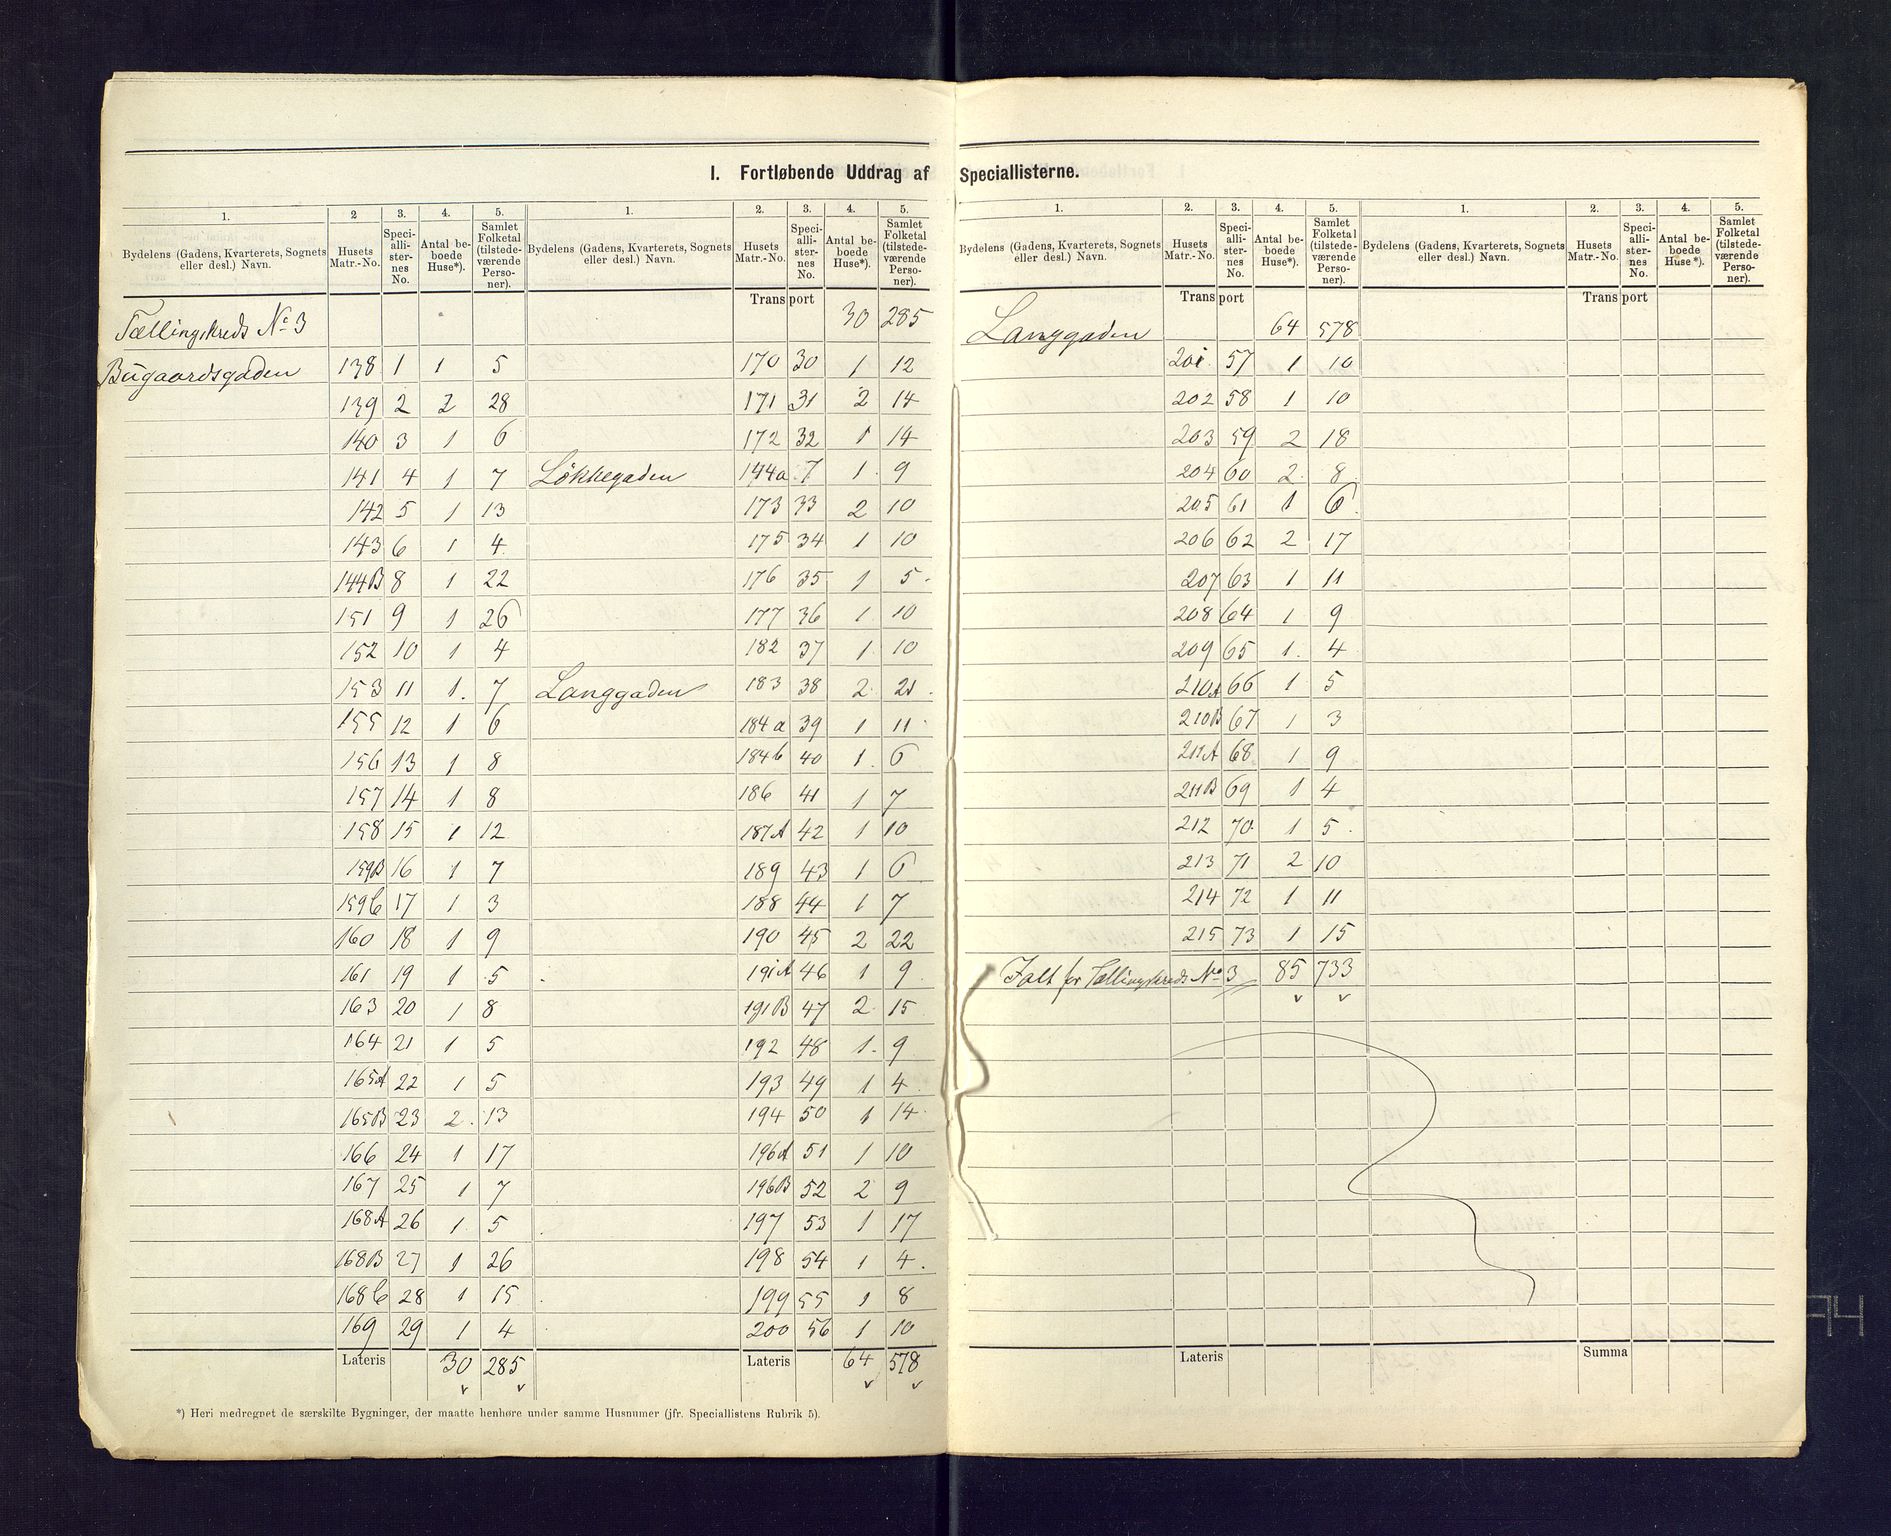 I. Fortløbende Uddrag af Speciallisterne.
1. 2 3. 4. 5.
Bydelens (Gadens, Kvarterets, Sognets eller desl.) Navn. Husets Matr.-No. Speci-alli-ster-nes No. Antal be-boede Huse*). Samlet Folketal (tilstede-værende Perso-ner).
Tællingskreds No. 3
Bugaardsgaden 138 1 1 5
139 2 2 28
140 3 1 6
141 4 1 7
142 5 1 13
143 6 1 4
144B 8 1 22
151 9 1 26
152 10 1 4
153 11 1. 7
155 12 1 6
156 13 1 8
157 14 1 8
158 15 1 12
159B 16 1 7
159C 17 1 3
160 18 1 9
161 19 1 5
163 20 1 8
164 21 1 5
165A 22 1 5
165B 23 2. 13
166 24 1 17
167 25 1 7
168A 26 1. 5
168B 27 1 26
168C 28 1 15
169 29 1 4
Lateris 30 285
1. 2. 3. 4. 5.
Bydelens (Gadens, Kvarterets, Sognets eller desl.) Navn. Husets Matr.-No. Speci-alli-ster-nes No. Antal be-boede Huse*). Samlet Folketal (tilstede-værende Perso-ner).
Transport 30 285
170 30 1 12
171 31 2 14
172 32 1 14
Løkkegaden 144a 7 1. 9
173 33 2 10
175 34 1 10
176 35 1 5.
177 36 1. 10
182 37 1. 10
Langgaden 183 38 2. 21.
184a 39 1 11.
184b 40 1. 6
186 41 1 7
187A 42 1 10
189 43 1 6
188 44 1 7
190 45 2 22
191A 46 1 9.
191B 47 2. 15.
192 48 1. 9
193 49 1 4.
194 50 1 14.
196A 51 1 10
196B 52 2 9
197 53 1 17
198 54 1 4.
199 55 1 8
200 56 1 10
Lateris 64 578
*) Heri medregnet de særskilte Bygninger, der maatte henhøre under samme Husnumer (jfr. Speciallistens Rubrik 5).
1. 2. 3. 4. 5.
Bydelens (Gadens, Kvarterets, Sognets eller desl.) Navn. Husets Matr.-No. Speci-alli-ster-nes No. Antal be-boede Huse*). Samlet Folketal (tilstede-værende Perso-ner).
Transport
Langgaden 64 578
201. 57 1 10
202 58 1 10
203 59 2 18
204 60 2. 8.
205 61 1 6.
206 62 2 17
207 63 1 11
208 64 1 9
209 65 1. 4.
210A 66 1. 5
210B 67 1 3
211A 68 1 9
211B 69 1 4
212 70. 1 5.
213 71 2 10
214 72 1 11
215 73 1 15
Ialt for Tællingskreds No. 3 85 733
Lateris
1. 2. 3. 4. 5.
Bydelens (Gadens, Kvarterets, Sognets eller desl.) Navn. Husets Matr.-No. Speci-alli-ster-nes No. Antal be-boede Huse*). Samlet Folketal (tilstede-værende Perso-ner).
Transport
Summa